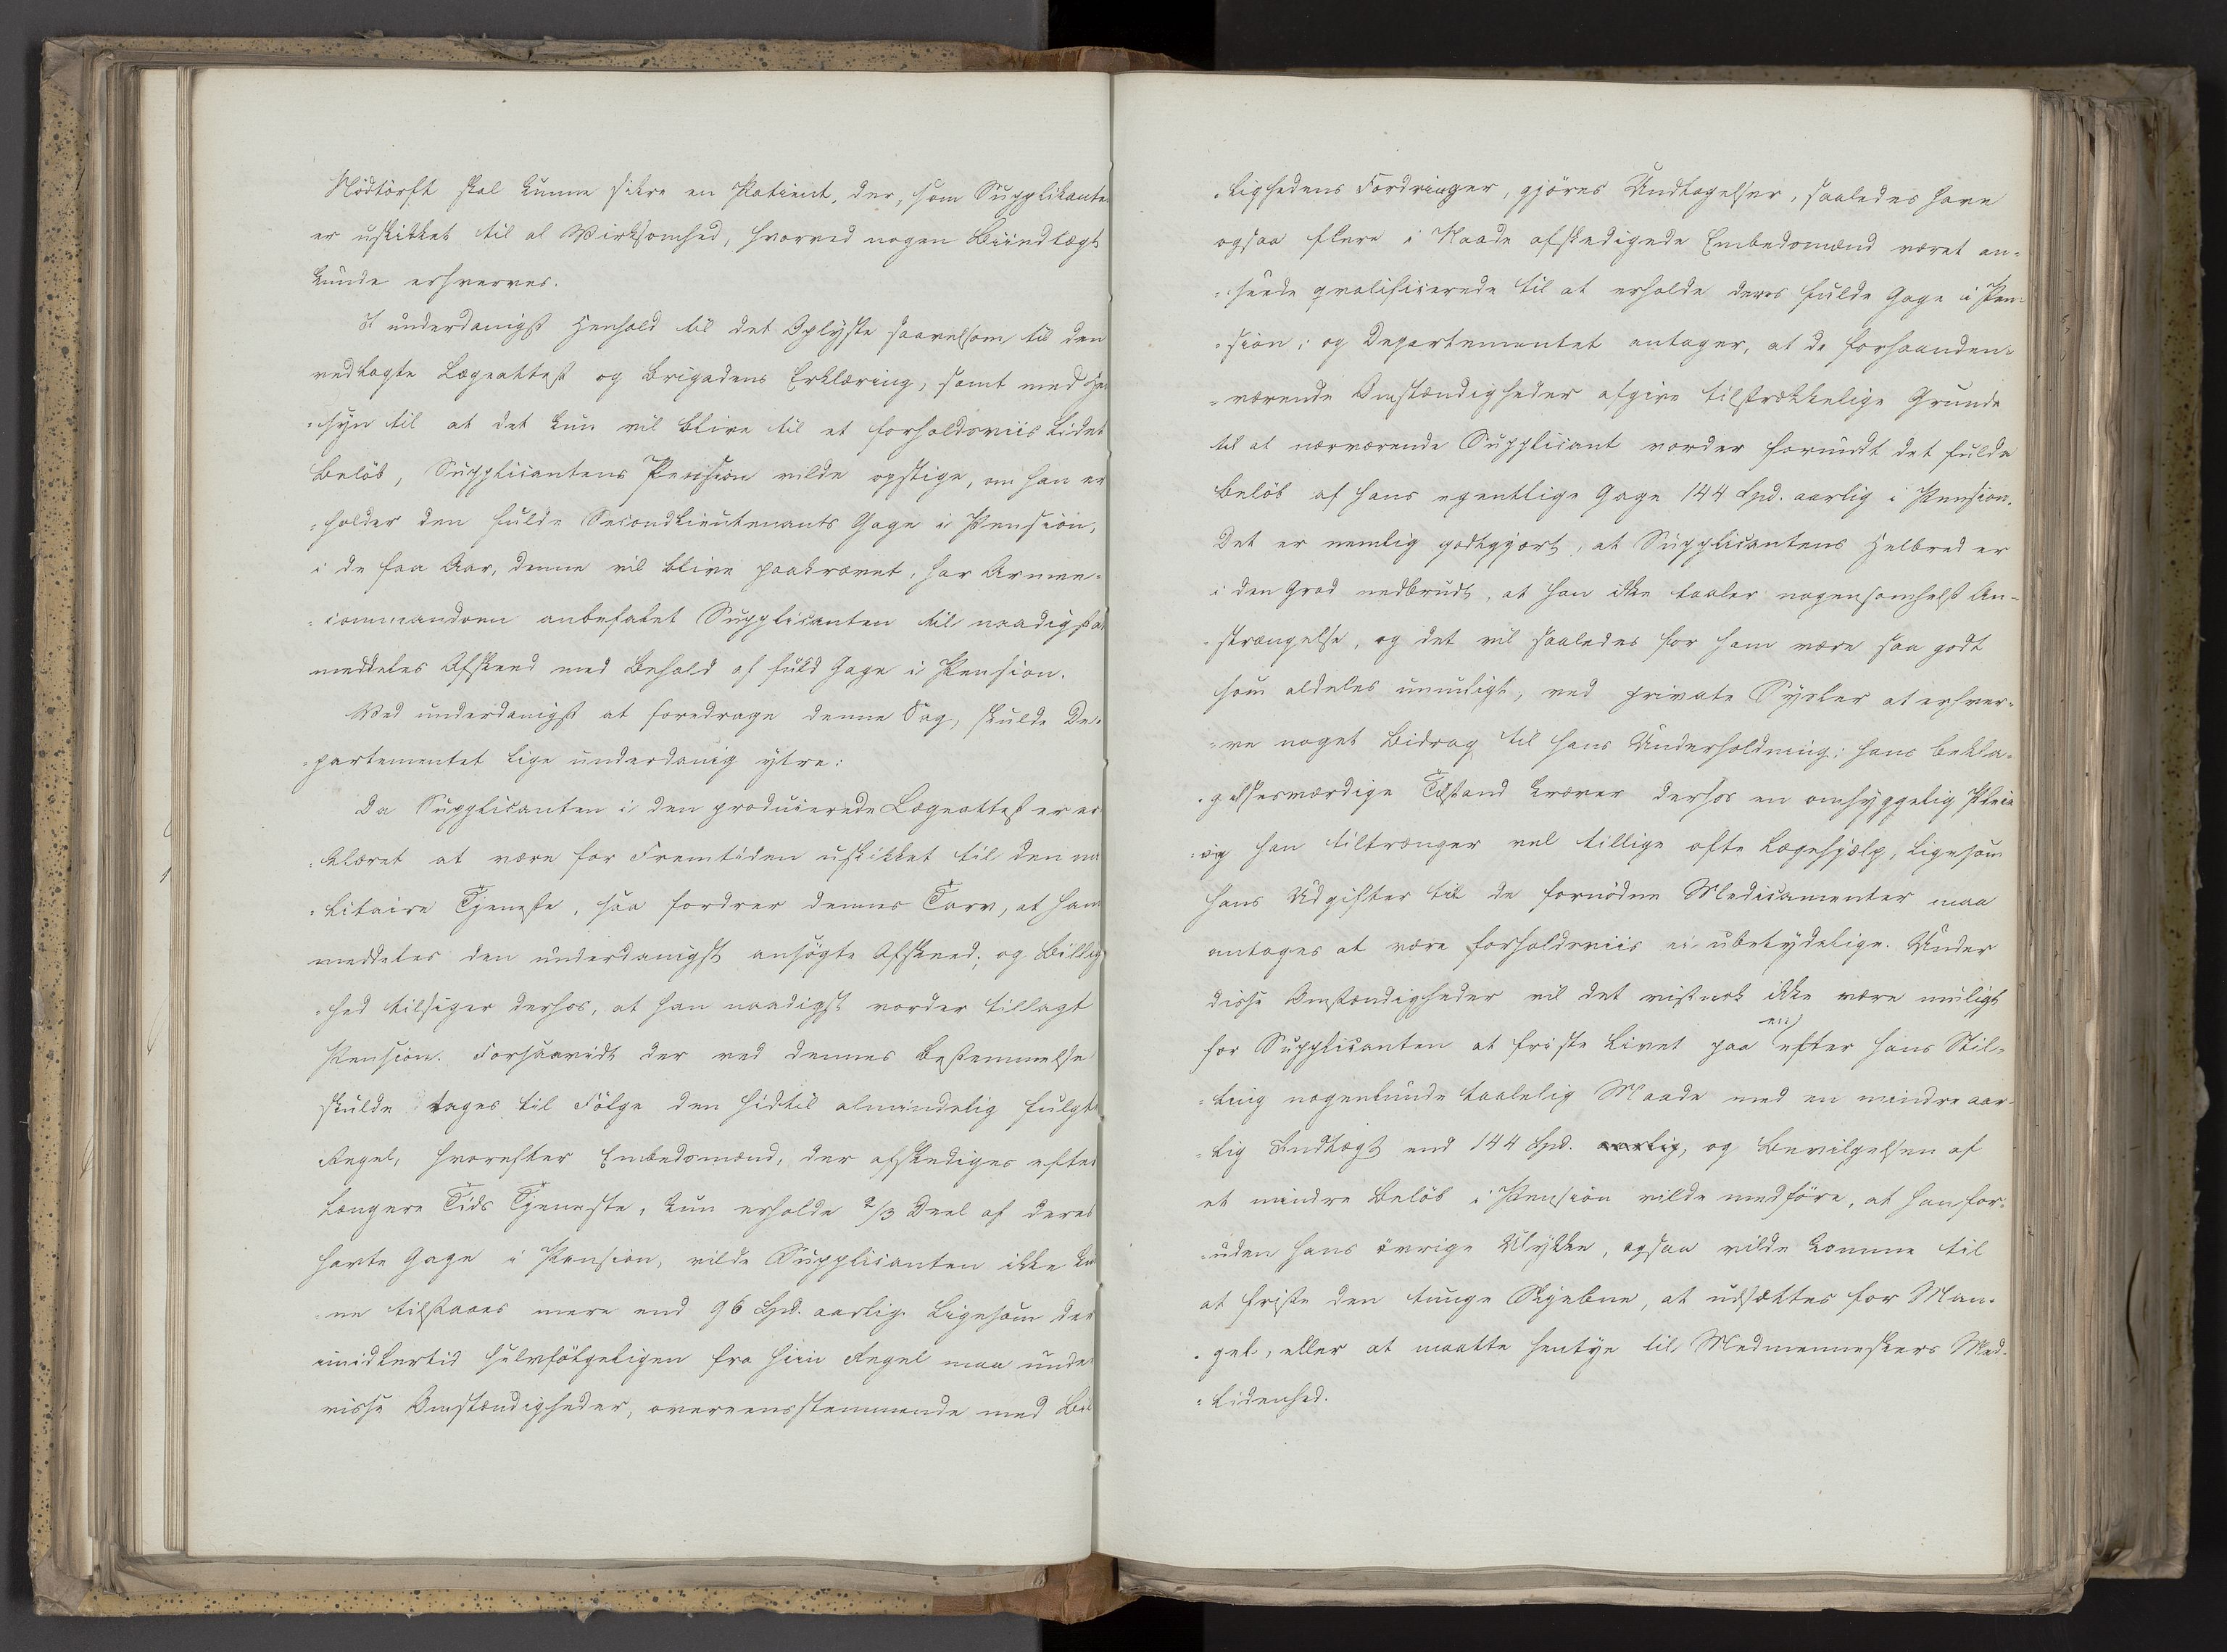 Nödtörft skal kunne sikre en Patient, der, som Supplikanten
er uskikket til al Virksomhed, hvorved nogen Biindtægt
kunde erhverves.
I underdanigst Henhold til det Oplyste saavelsom til den
vedlagte Lægeattest og Brigadens Erklæring, samt med Hen
=syn til at det kun vil blive til et forholdsviis lidet
Beløb, Supplicantens Pension vilde opstige, om han er
=holder den fulde Secondlieutenants Gage i Pension,
i de faa Aar, denne vil blive paakrævet, har Armee=
=commandoen anbefalet Supplicanten til naadigst at
meddeles Afskeed med Behold af fuld Gage i Pension.
Ved underdanigst at foredrage denne Sag, skulde De=
=partementet lige underdanig ytre:
Da Supplicanten i den producerede Lægeattest er er
=klæret at være for Fremtiden uskikket til den mi
=litaire Tjeneste, saa fordrer dennes Tarv, at ham
meddeles den underdanigst ansögte Afskeed; og Billig
=hed tilsiger derhos, at han naadigst vorder tillagt
Pension. Forsaavidt der ved dennes Bestemmelse
skulde tages til Følge den hidtil almindelig fulgte
Regel, hvorefter Embedsmænd, der afskediges efter
længere Tids Tjeneste, kun erholde 2/3 Deel af deres
havte Gage i Pension, vilde Supplicanten ikke kun
=ne tilstaaes mere end 96 Spd. aarlig. Ligesom der
imidlertid selvfølgeligen fra hiin Regel maa under
visse Omstændigheder, overeensstemmende med Bil
=lighedens Fordringer, gjöres Undtagelser, saaledes have
ogsaa flere i Naade afskedigede Embedsmænd været an=
=seede qvalificerede til at erholde deres fulde Gage i Pen=
=sion; og Departementet antager, at de forhaanden=
=værende Omstændigheder afgive tilstrækkelige Grunde
til at nærværende Supplicant vorder forundt det fulde
Beløb af hans egentlige Gage 144 Spd. aarlig i Pension.
Det er nemlig godtgjort, at Supplicantens Helbred er
i den Grad nedbrudt, at han ikke taaler nogensomhelst An=
=strængelse, og det vil saaledes for ham være saa godt
som aldeles umuligt, ved private Sysler at erhver=
=ve noget Bidrag til hans Underholdning; hans bekla=
=gelsesværdige Tilstand kræver derhos en omhyggelig Pleie
og han tiltrænger vel tillige ofte Lægehjælp, ligesom
hans Udgifter til de fornødne Medicamenter maa
antages at være forholdsviis ei ubetydelige. Under
disse Omstændigheder vil det vistnok ikke være muligt
for Supplicanten at friste Livet paa en efter hans Stil=
=ling nogenlunde taalelig Maade med en mindre aar=
=lig Indtægt end 144 Spd. aarlig, og Bevilgelsen af
et mindre Beløb i Pension vilde medføre, at han for=
=uden hans øvrige Ulykke, ogsaa vilde komme til
at friste den tunge Skjebne, at udsættes for Man=
=gel, eller at maatte hentye til Medmenneskers Med=
=lidenhed.